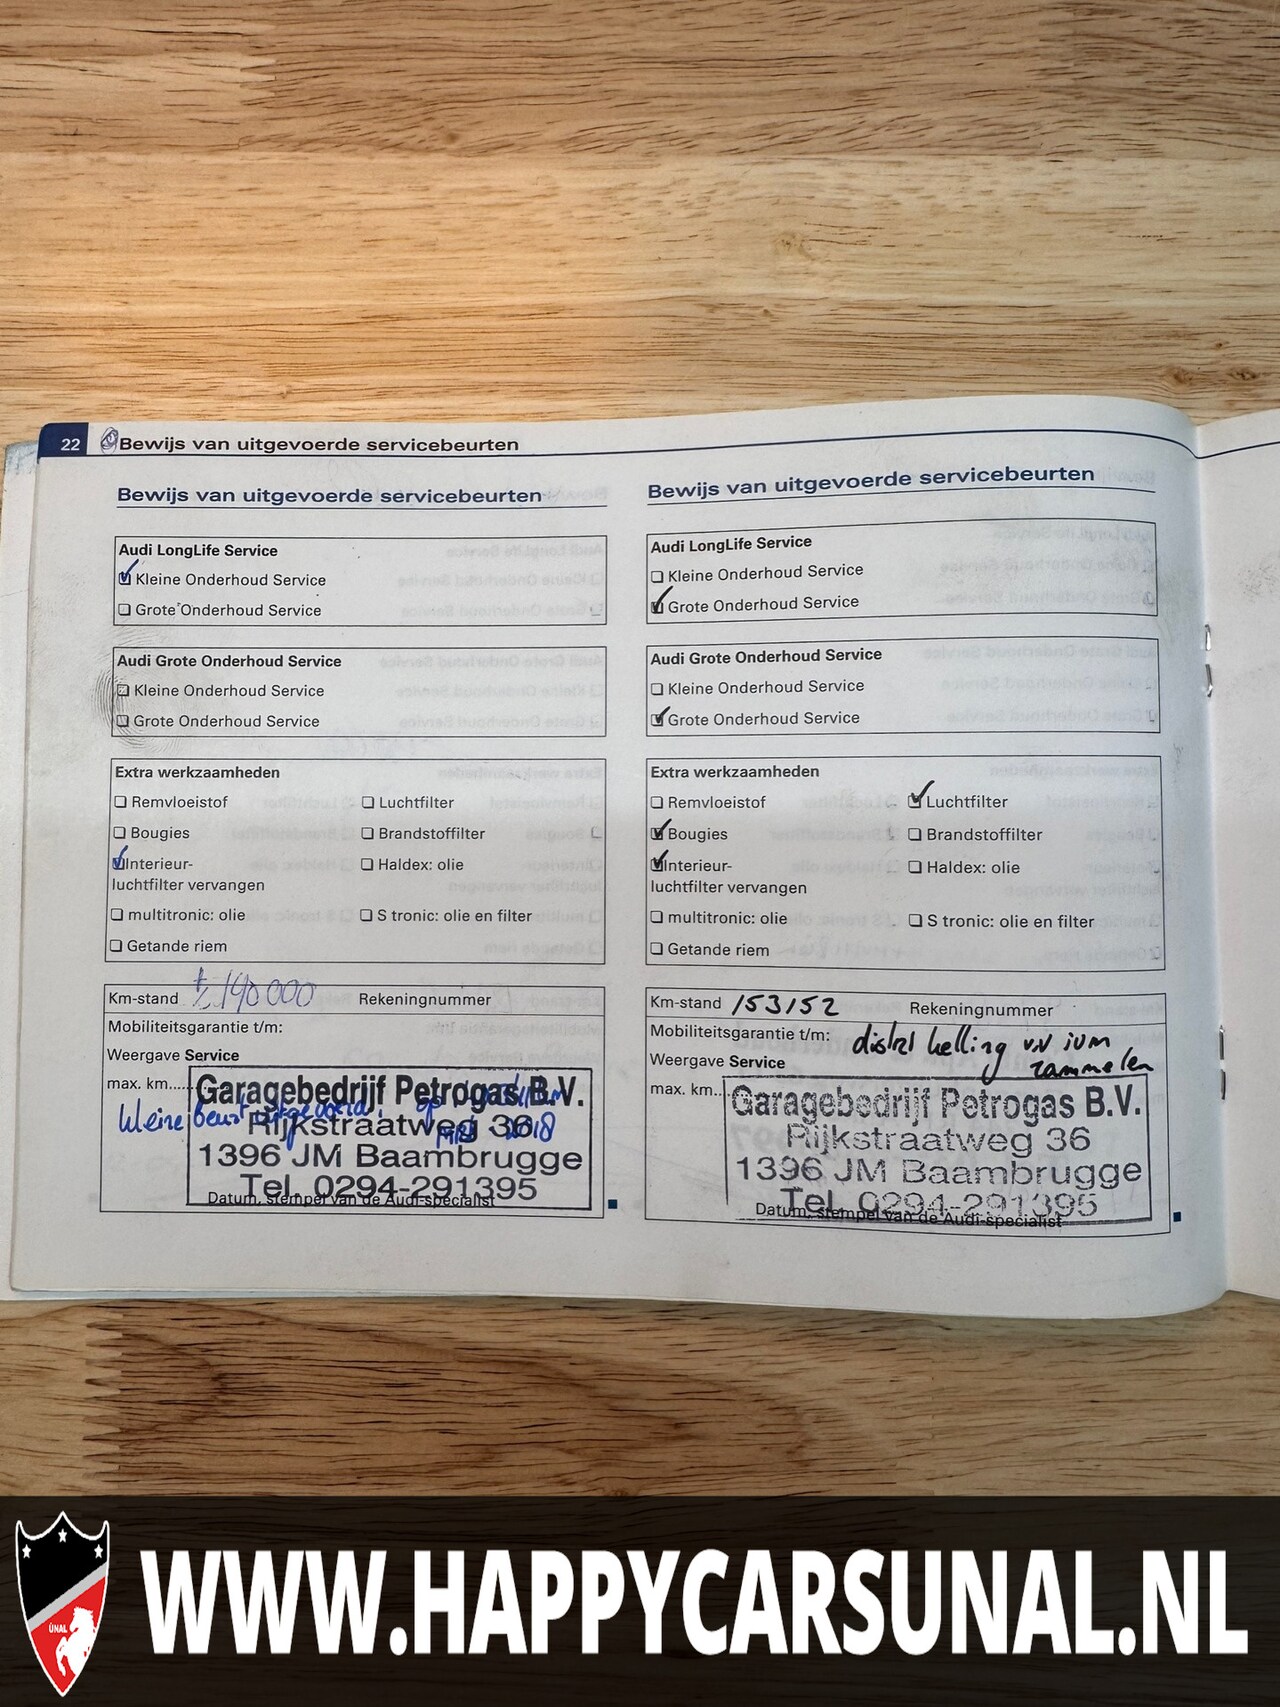 22 Bewijs van uitgevoerde servicebeurten
Bewijs van uitgevoerde servicebeurten
Audi LongLife Service
Kleine Onderhoud Service
Grote Onderhoud Service
Audi Grote Onderhoud Service
Kleine Onderhoud Service
Grote Onderhoud Service
Extra werkzaamheden
Remvloeistof Luchtfilter
Bougies Brandstoffilter
Interieur- Haldex: olie
luchtfilter vervangen
multitronic: olie S tronic: olie en filter
Getande riem
Km-stand ± 140 000 Rekeningnummer
Mobiliteitsgarantie t/m:
Weergave Service
max. km......
Garagebedrijf Petrogas B.V.
kleine beurt uitgevoerd op
Rijkstraatweg 36
2018
1396 JM Baambrugge
Tel. 0294-291395
Datum, stempel van de Audi-specialist
Bewijs van uitgevoerde servicebeurten
Audi LongLife Service
Kleine Onderhoud Service
Grote Onderhoud Service
Audi Grote Onderhoud Service
Kleine Onderhoud Service
Grote Onderhoud Service
Extra werkzaamheden
Remvloeistof Luchtfilter
Bougies Brandstoffilter
Interieur- Haldex: olie
luchtfilter vervangen
multitronic: olie S tronic: olie en filter
Getande riem
Km-stand 153152 Rekeningnummer
Mobiliteitsgarantie t/m:
Weergave Service
rammelen
max. km...
Garagebedrijf Petrogas B.V.
Rijkstraatweg 36
1396 JM Baambrugge
Tel. 0294-291395
Datum, stempel van de Audi-specialist
ÜNAL
WWW.HAPPYCARSUNAL.NL